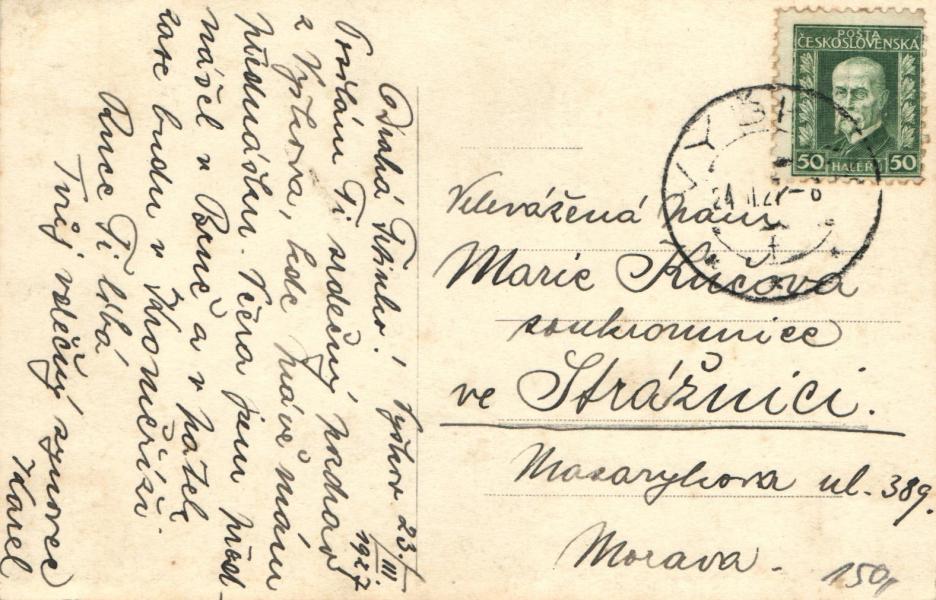 Drahá Tetinko! Vyškov 23./III. 1927
Posílám Ti srdečný pozdrav
z Vyškova, kde právě mám
přednášku. Včera jsem před-
nášel v Brně a v pátek
zase budu v Kroměříži.
Ruce Ti líbá
Tvůj vděčný synovec
Karel
POŠTA
ČESKOSLOVENSKÁ
50 HALÉŘŮ 50
Velevážená paní
Marie Kucova
soukromnice
ve Strážnici.
Masarykova ul. 389.
Morava.
150,